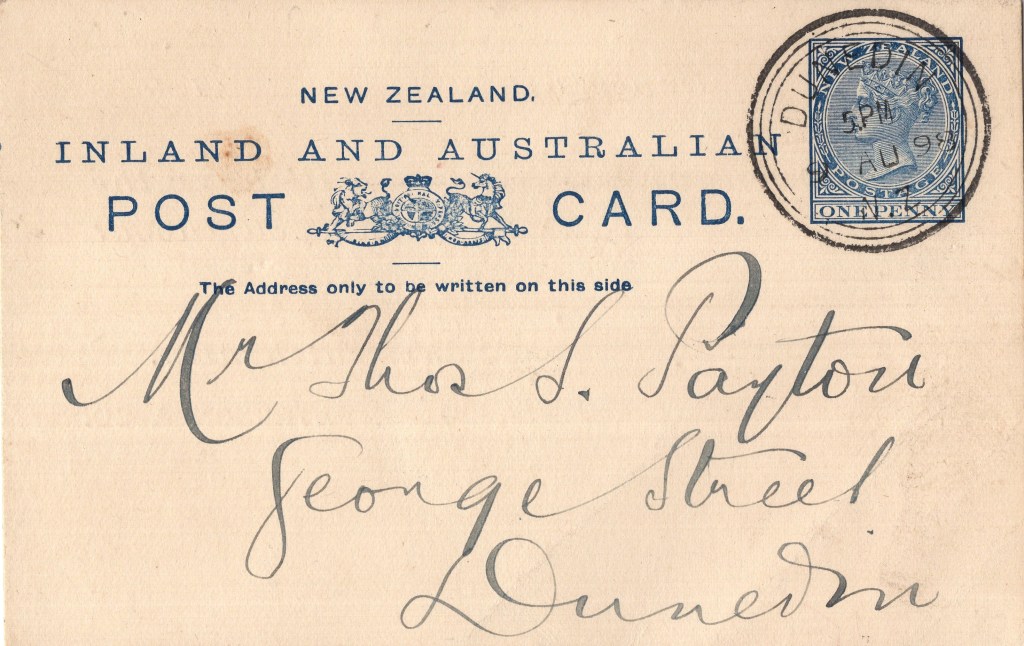 NEW ZEALAND.
INLAND AND AUSTRALIAN
POST CARD.
The Address only to be written on this side
NEW ZEALAND
POSTAGE
ONE PENNY
DUNEDIN
5 PM
AU 98
N.Z
Mr Thos S. Payton
George Street
Dunedin